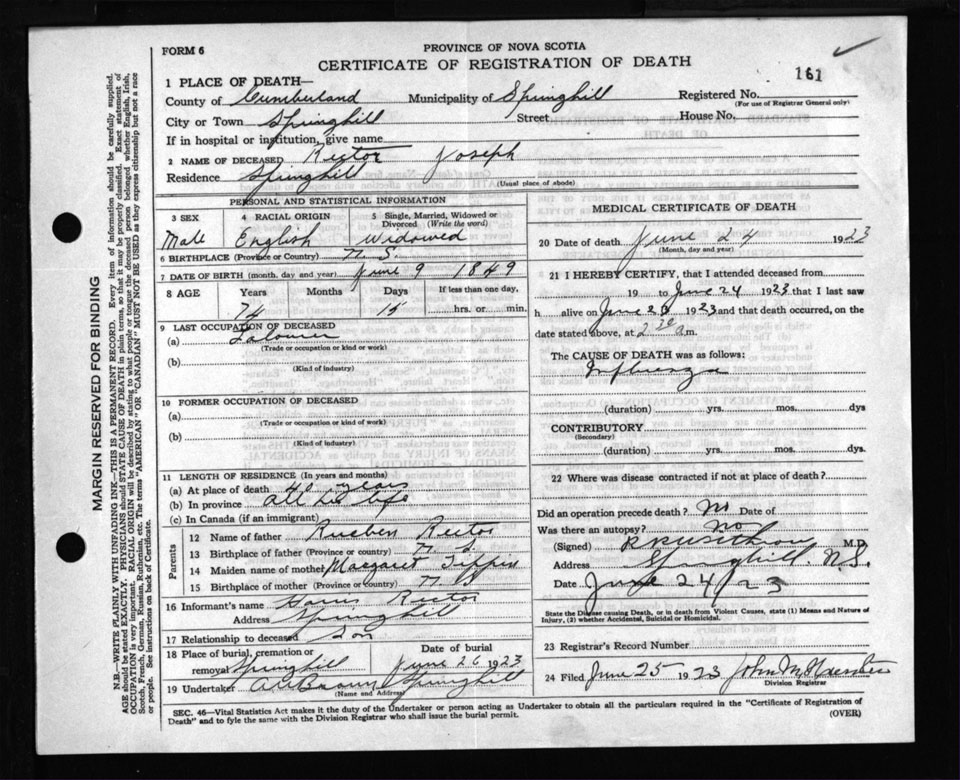 FORM 6
PROVINCE OF NOVA SCOTIA
CERTIFICATE OF REGISTRATION OF DEATH
161
1 PLACE OF DEATH—
County of Cumberland Municipality of Springhill Registered No.
(For use of Registrar General only)
City or Town Springhill Street House No.
If in hospital or institution, give name
2 NAME OF DECEASED Rector Joseph
Residence Springhill
(Usual place of abode)
PERSONAL AND STATISTICAL INFORMATION
3 SEX 4 RACIAL ORIGIN 5 Single, Married, Widowed or Divorced (Write the word)
Male English Widowed
6 BIRTHPLACE (Province or Country) N. S.
7 DATE OF BIRTH (month, day and year) June 9 1849
8 AGE Years Months Days If less than one day,
74 15 hrs. or min.
9 LAST OCCUPATION OF DECEASED
(a) Labourer
(Trade or occupation or kind or work)
(b)
(Kind of industry)
10 FORMER OCCUPATION OF DECEASED
(a)
(Trade or occupation or kind or work)
(b)
(Kind of industry)
11 LENGTH OF RESIDENCE (In years and months)
(a) At place of death years
(b) In province All his life
(c) In Canada (if an immigrant)
Parents
12 Name of father Reuben Rector
13 Birthplace of father (Province or country) N. S.
14 Maiden name of mother Margaret
15 Birthplace of mother (Province or country) N S
16 Informant's name Rector
Address Springhill
17 Relationship to deceased Son
18 Place of burial, cremation or removal Springhill Date of burial June 26 1923
19 Undertaker Brown Springhill
(Name and Address)
MEDICAL CERTIFICATE OF DEATH
20 Date of death June 24 1923
(Month, day and year)
21 I HEREBY CERTIFY, that I attended deceased from
19 to June 24 1923 that I last saw
h alive on June 23 1923 and that death occurred, on the
date stated above, at 2 30 a.m.
The CAUSE OF DEATH was as follows:
Influenza
(duration) yrs. mos. dys
CONTRIBUTORY
(Secondary)
(duration) yrs. mos. dys
22 Where was disease contracted if not at place of death?
Did an operation precede death? No Date of
Was there an autopsy? No
(Signed) M.D.
Address Springhill. N.S.
Date June 24/23
State the Disease causing Death, or in death from Violent Causes, state (1) Means and Nature of
Injury, (2) whether Accidental, Suicidal or Homicidal.
23 Registrar's Record Number
24 Filed June 25 1923 John
Division Registrar
SEC. 46—Vital Statistics Act makes it the duty of the Undertaker or person acting as Undertaker to obtain all the particulars required in the "Certificate of Registration of
Death" and to fyle the same with the Division Registrar who shall issue the burial permit. (OVER)
MARGIN RESERVED FOR BINDING
N.B.—WRITE PLAINLY WITH UNFADING INK—THIS IS A PERMANENT RECORD. Every item of information should be carefully supplied.
AGE should be stated EXACTLY. PHYSICIANS should STATE CAUSE OF DEATH in plain terms, so that it may be properly classified. Exact statement of
OCCUPATION is very important. RACIAL ORIGIN will be described by stating to what people or tongue the deceased person belonged whether English, Irish,
Scotch, French, German, Russian, Ruthenian, etc. The terms "AMERICAN" OR "CANADIAN" MUST NOT BE USED as they express citizenship but not a race
or people. See instructions on back of Certificate.